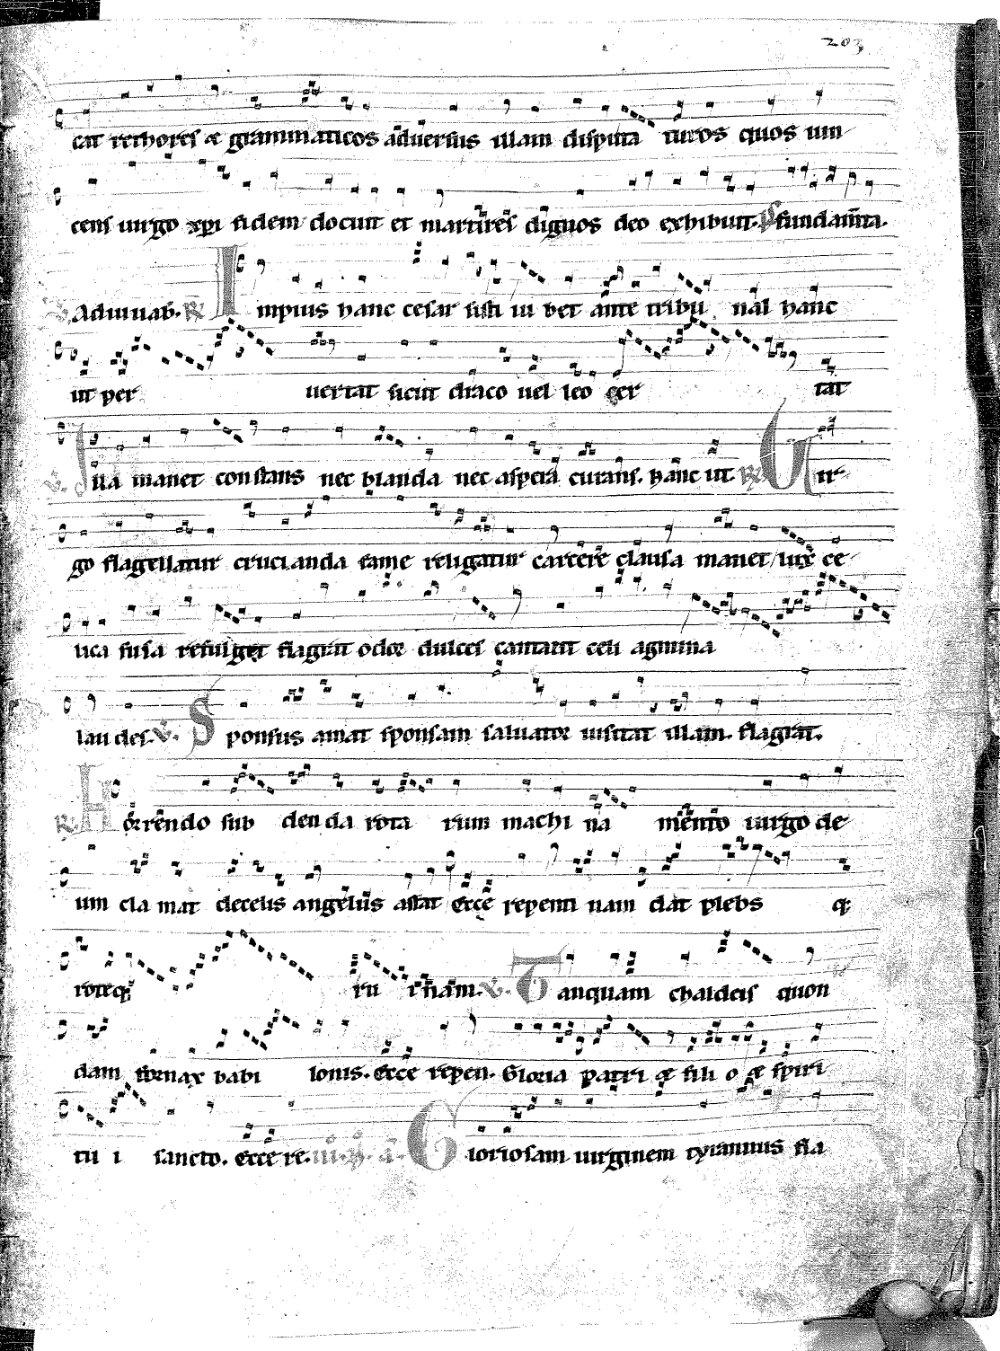 203
cat rethores et grammaticos aduersus illam disputa turos quos uin
cens uirgo xpi fidem docuit et martires dignos deo exhibuit. Ps fundamta.
Adiuuab. R Impius hanc cesar sisti iu bet ante tribu nal hanc
ut per uertat sicut draco uel leo cer tat
V. Illa manet constans nec blanda nec aspera curans. hanc ut. R Uir
go flagellatur crucianda fame religatur carcere clausa manet lux ce
lica fusa refulget flagrat odor dulces cantant celi agmina
laudes. V. Sponsus amat sponsam saluator uisitat illam. flagrat.
R. Horrendo sub denda rota rum machi na mento uirgo de
um cla mat decelis angelus astat Ecce repenti nam dat plebs q
roteq ru inam. V. Tanquam chaldeis quon
dam fornax babi lonis. Ecce repen. Gloria patri et fili o et spiri
tu i sancto. Ecce re. iii. N. a. Gloriosam uirginem tyrannus fla